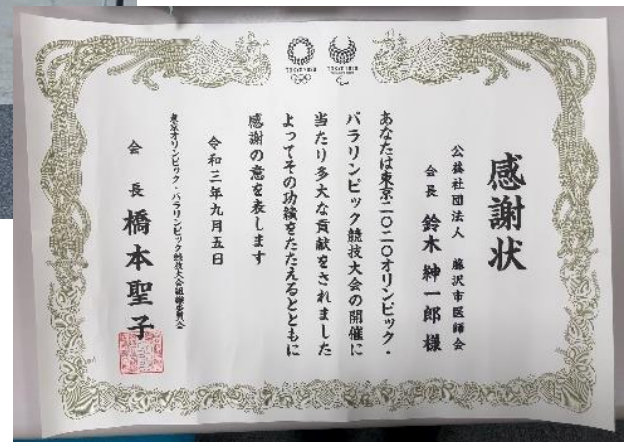 TOKYO 2020
TOKYO 2020
感謝状
公益社団法人 藤沢市医師会
会長 鈴木紳一郎様
あなたは東京二〇二〇オリンピック・
パラリンピック競技大会の開催に
当たり多大な貢献をされました
よってその功績をたたえるとともに
感謝の意を表します
令和三年九月五日
東京オリンピック・パラリンピック競技大会組織委員会
会長 橋本聖子